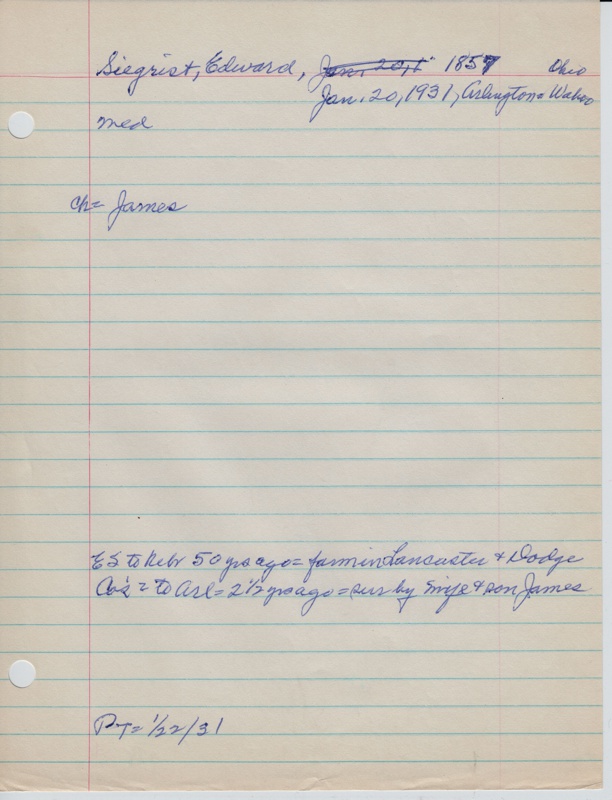 Siegrist, Edward, Jan. 20, 1" 1857 Ohio
Jan. 20, 1931, Arlington = Wahoo
med
ch = James
ES to Nebr 50 yrs ago = farm in Lancaster + Dodge
Co's = to Arl = 2 1/2 yrs ago = sur by wife + son James
PT = 1/22/31